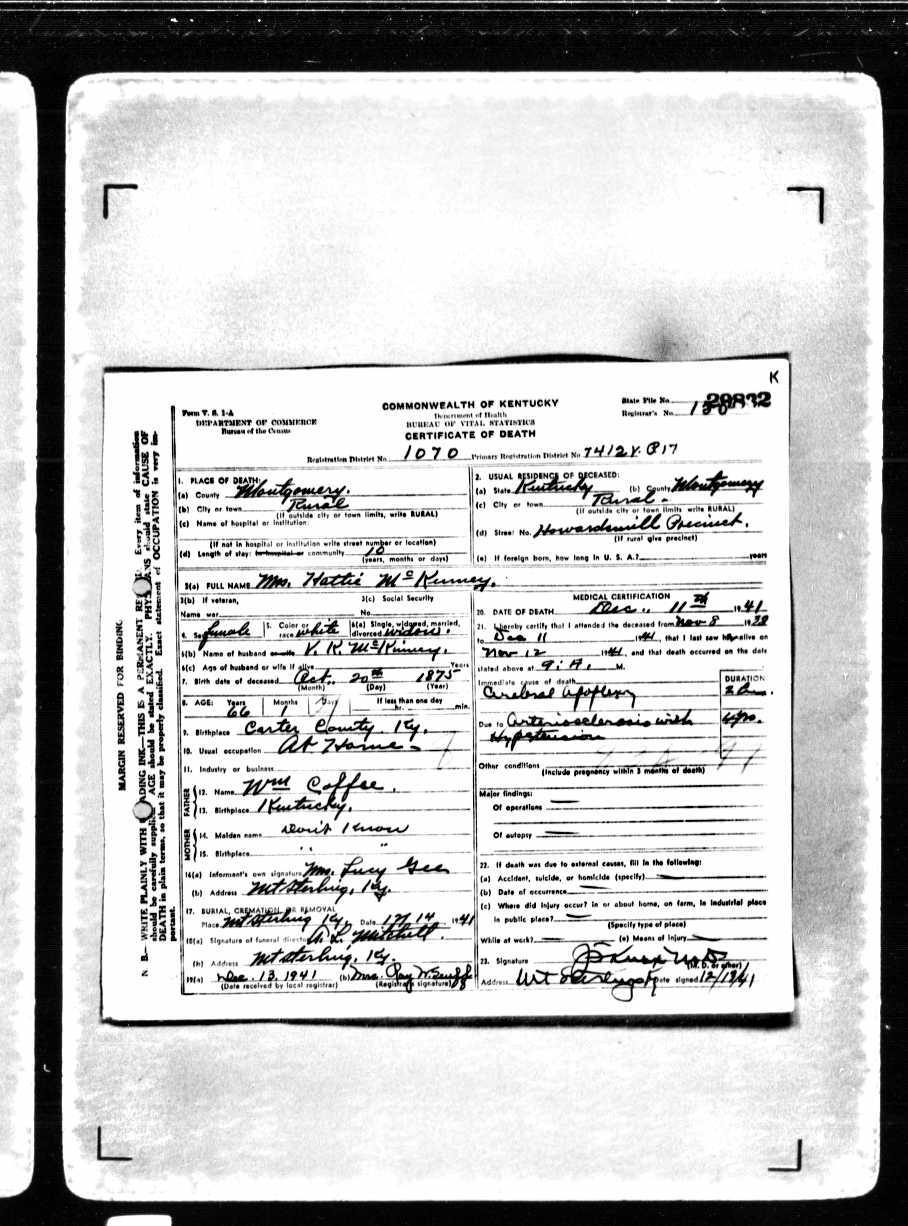 K
Form V. S. 1-A
DEPARTMENT OF COMMERCE
Bureau of the Census
COMMONWEALTH OF KENTUCKY
Department of Health
BUREAU OF VITAL STATISTICS
CERTIFICATE OF DEATH
State File No. 28832
Registrar's No.
Registration District No. 1070 Primary Registration District No. 7412
MARGIN RESERVED FOR BINDING
N. B.— WRITE PLAINLY WITH ADING INK—THIS IS A PERMANENT RE Every item of information
should be carefully supplie AGE should be stated EXACTLY. PHYS NS should state CAUSE OF
DEATH in plain terms, so that it may be properly classified. Exact statement of OCCUPATION is very im-
portant.
1. PLACE OF DEATH:
(a) County Montgomery.
(b) City or town Rural
(If outside city or town limits, write RURAL)
(c) Name of hospital or institution
(If not in hospital or institution write street number or location)
(d) Length of stay: in hospital or community 10
(years, months or days)
2. USUAL RESIDENCE OF DECEASED:
(a) State Kentucky (b) County Montgomery
(c) City or town Rural -
(If outside city or town limits, write RURAL)
(d) Street No. Howardsmill Precinct.
(If rural give precinct)
(e) If foreign born, how long in U. S. A.? years
3(a) FULL NAME Mrs. Hattie McKinney.
3(b) If veteran,
Name war
3(c) Social Security
No.
4. Sex female 5. Color or race white 6(a) Single, widowed, married, divorced widow.
6(b) Name of husband or wife V. K. McKinney.
6(c) Age of husband or wife if alive Years
7. Birth date of deceased Oct. 20th 1875
(Month) (Day) (Year)
8. AGE: Years 66 Months 1 Days If less than one day
hr. min.
9. Birthplace Carter County Ky.
10. Usual occupation At Home -
11. Industry or business
FATHER
12. Name Wm Coffee.
13. Birthplace Kentucky.
MOTHER
14. Maiden name Don't Know
15. Birthplace " "
16(a) Informant's own signature Mrs. Lucy Gee
(b) Address Mt Sterling, Ky.
17. BURIAL, CREMATION OR REMOVAL
Place Mt Sterling Ky. Date 12/14 1941
18(a) Signature of funeral director A. L. Mitchell.
(b) Address Mt Sterling, Ky.
19(a) Dec. 13, 1941 (b) Mrs. Ray
(Date received by local registrar) (Registrar's signature)
MEDICAL CERTIFICATION
20. DATE OF DEATH Dec. 11th 1941
21. I hereby certify that I attended the deceased from Nov 8 1938
to Dec 11 1941, that I last saw her alive on
Nov 12 1941, and that death occurred on the date
stated above at 9: A. M.
Immediate cause of death
DURATION
Cerebral apoplexy
Due to Arteriosclerosis with
Hypertension
Other conditions
(Include pregnancy within 3 months of death)
Major findings:
Of operations
Of autopsy
22. If death was due to external causes, fill in the following:
(a) Accident, suicide, or homicide (specify)
(b) Date of occurrence
(c) Where did injury occur? in or about home, on farm, in industrial place
in public place?
(Specify type of place)
While at work? (e) Means of injury
23. Signature
(M. D. or other)
Address Mt Sterling Ky Date signed